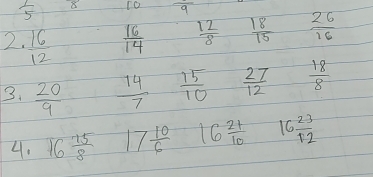 5 8 10 9
2. 16/12 16/14 12/8 18/15 26/16
3. 20/9 14/7 15/10 27/12 18/8
4. 16 15/8 17 10/6 16 21/10 16 23/12